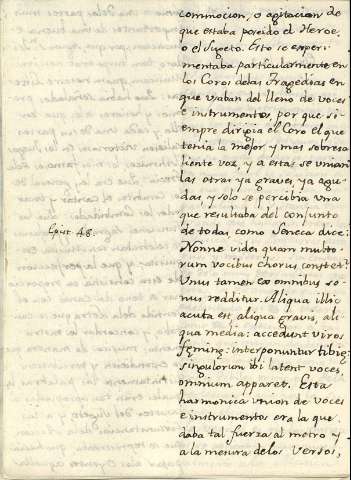 commocion, o agitacion de
que estaba poseido el Heroe,
o el Sugeto. Esto se experi-
mentaba particularmente en
los Coros delas Tragedias en
que usaban del lleno de voces
e instrumentos, por que si-
empre dirigia el Coro el que
tenia la mejor y mas sobresa
liente voz, y a estas se unian
las otras ya graves, ya agu-
das, y solo se percibia una
que resultaba del conjunto
de todas, como Seneca dice:
Epist. 48.
Nonne vides quam multo-
rum vocibus chorus constet?
Unus tamen ex omnibus so-
nus redditur. Aliqua illic
acuta est, aliqua gravis, ali
qua media: accedunt viris
feminę: interponuntur tibię:
singulorum ibi latent voces,
omnium apparet. Esta
harmonica union de voces
e instrumentos era la que
daba tal fuerza al metro y
a la mesura delos versos,